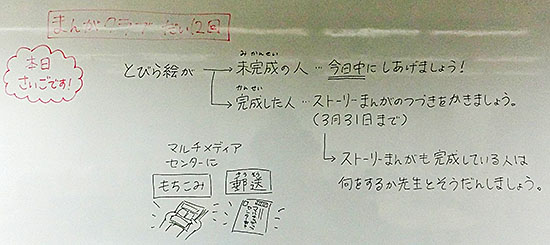 まんがクラブ だい12回
本日
さいごです!
とびら絵が
みかんせい
未完成の人 … 今日中にしあげましょう!
かんせい
完成した人 … ストーリーまんがのつづきをかきましょう。
(3月31日まで)
ストーリーまんがも完成している人は
何をするか先生とそうだんしましょう。
マルチメディア
センターに
もちこみ
ゆうそう
郵送